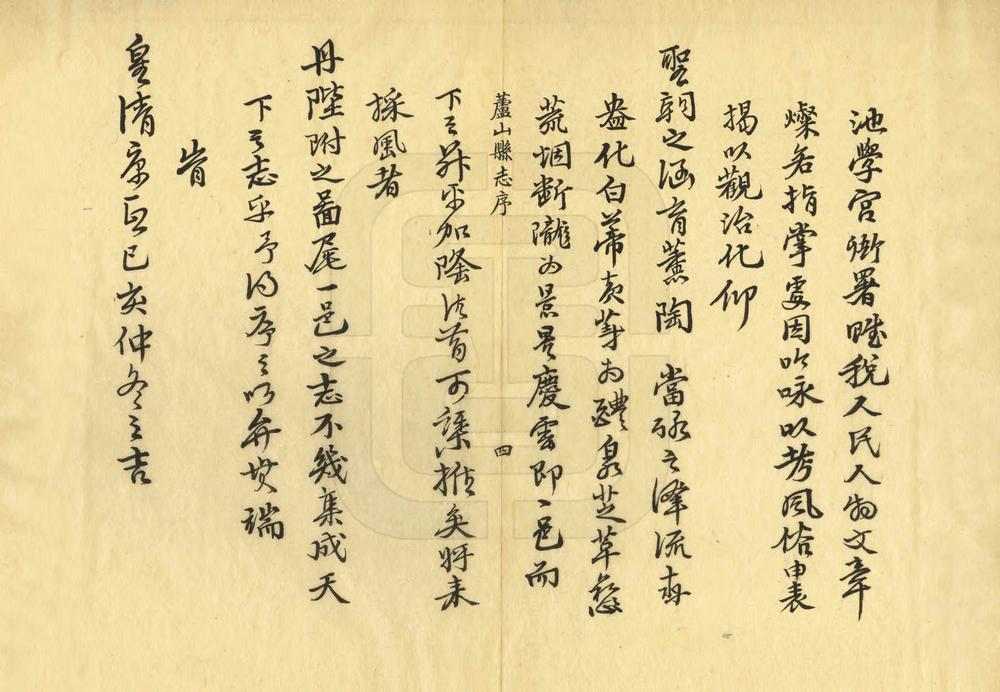 池學宮衙署賦稅人民人物文章
燦若指掌更因以咏以考風俗申表
揭以觀治化仰
聖朝之涵育薰陶 當詠之澤流
盎化白茅為醴泉芝草
荒烟斷隴為景星慶雲即一邑而
蘆山縣志序
四
下之昇平加隆法首可類推矣將來
採風者
丹陛附之圖尾一邑之志不幾集成天
下之志乎予得序之以弁其端
旹
皇清康熙己亥仲冬之吉